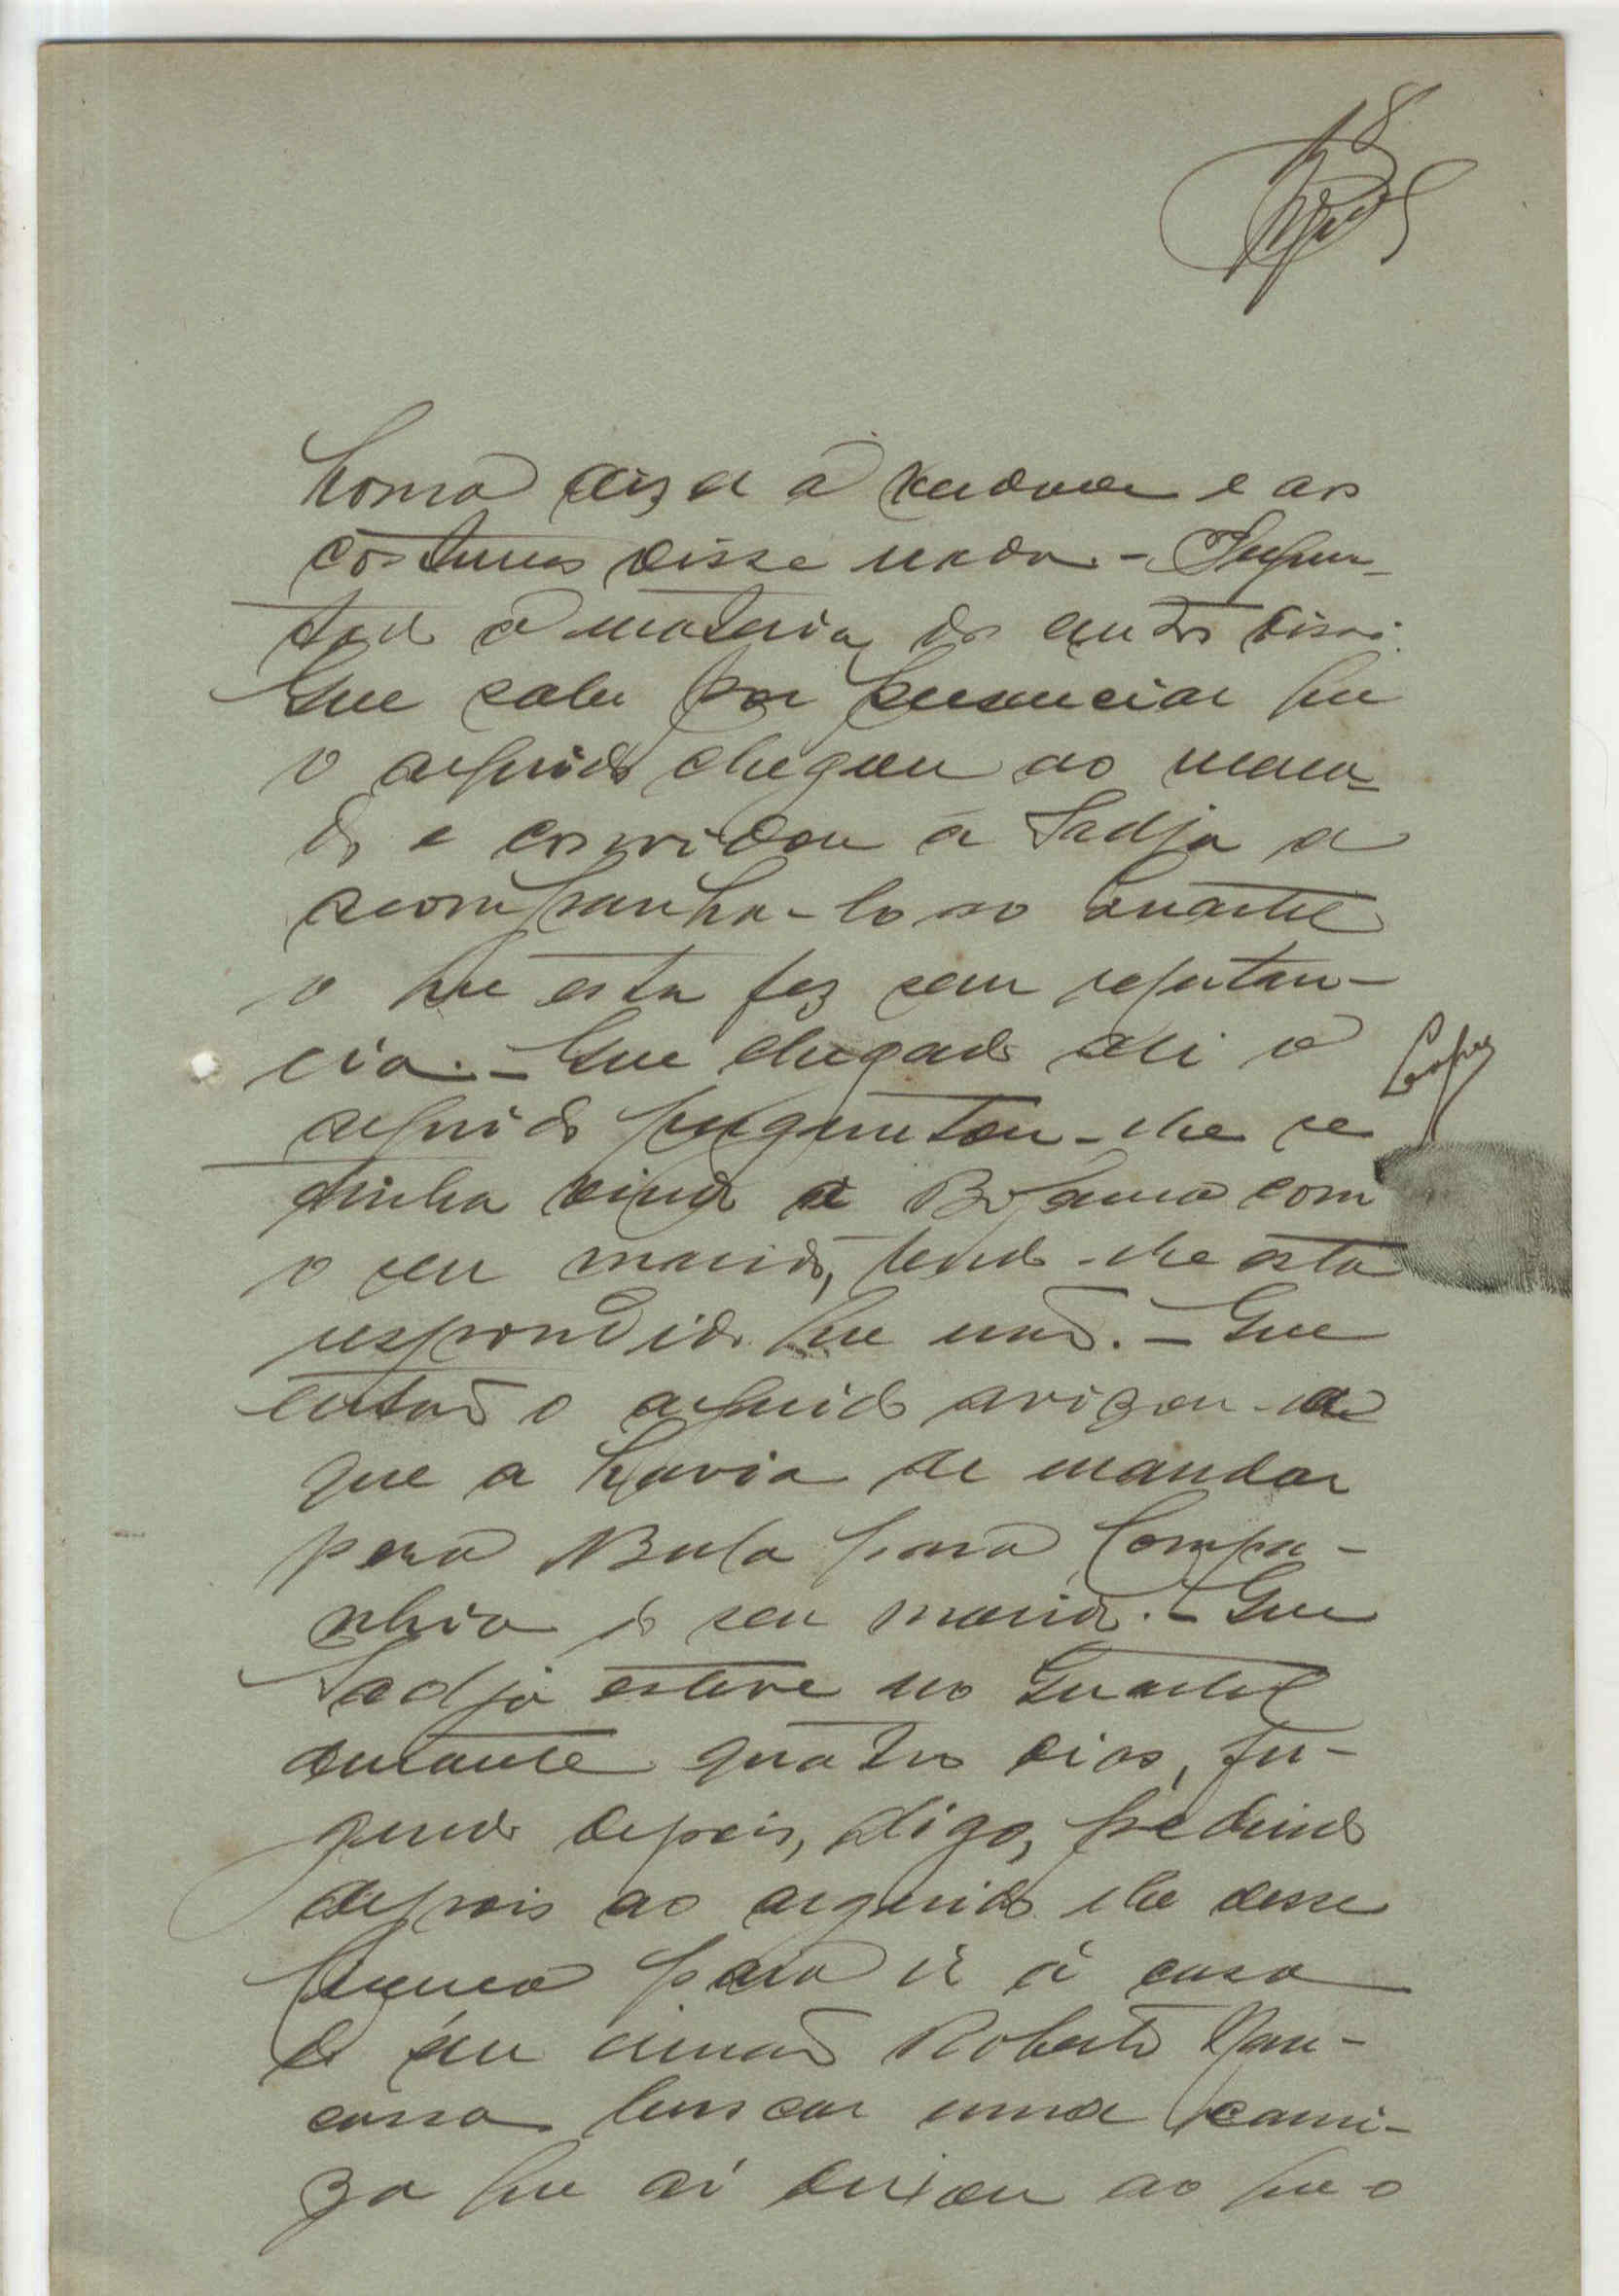 8
honra dizer a verdade e aos
costumes disse nada. - Pergun-
tado á materia dos autos disse:
Que sabe por presenciar que
o arguido chegou ao merca-
do e convidou a Sadja a
acompanha-lo ao Quartel
o que esta fez sem relutan-
cia. - Que chegado ali o
arguido perguntou-lhe se
tinha vindo a Bolama com
o seu marido, tendo-lhe esta
respondido que não. - Que
então o arguido avizou-a
que a havia de mandar
para Bula para Compa-
nhia do seu marido. - Que
Sadja esteve no Quartel
durante quatro dias, fu-
gindo depois, digo, pedindo
depois ao arguido lhe desse
licença para ir á casa
do seu irmão Roberto
buscar uma cami-
za que aí deixou ao que o